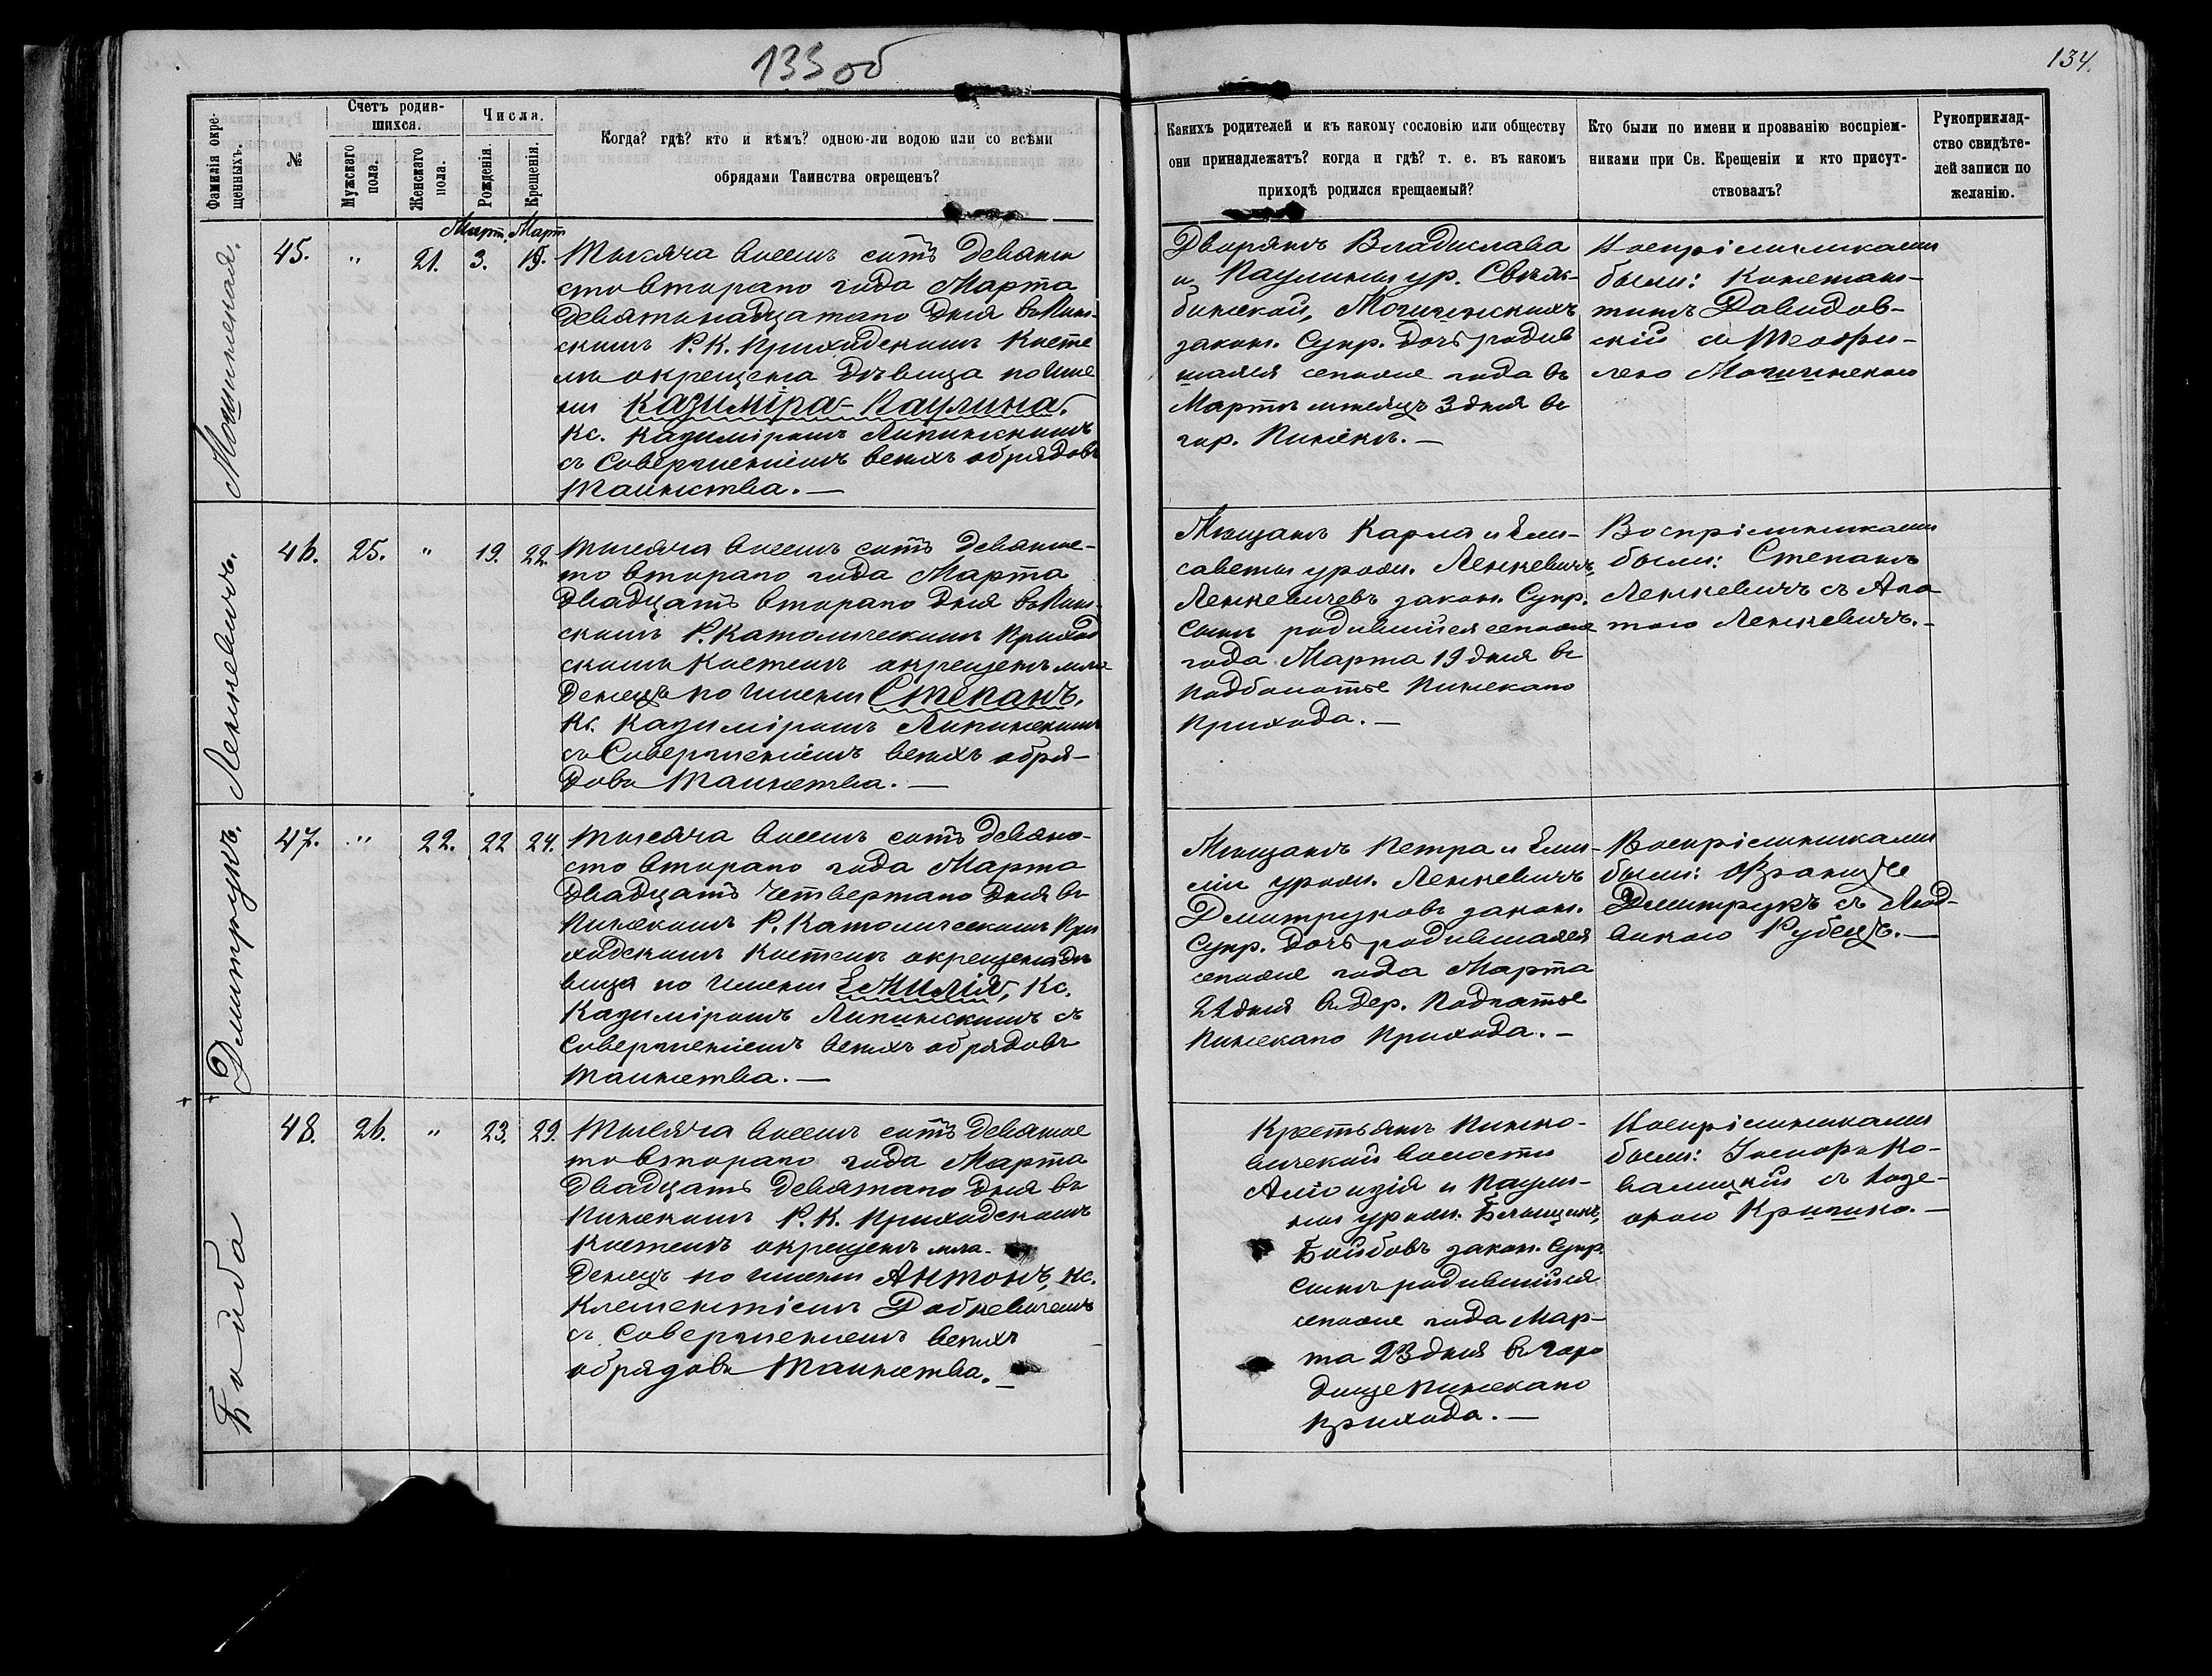 133 об
134.
Фамилія окре-
щенныхъ.
№
Счетъ родив-
шихся.
Мужскаго
пола.
Женскаго
пола.
Числа.
Рожденія.
Крещенія.
Когда? гдѣ? кто и кѣмъ? одною-ли водою или со всѣми
обрядами Таинства окрещенъ?
Какихъ родителей и къ какому сословію или обществу
они принадлежатъ? когда и гдѣ? т. е. въ какомъ
приходѣ родился крещаемый?
Кто были по имени и прозванію воспріем-
никами при Св. Крещеніи и кто присут-
ствовалъ?
Рукоприклад-
ство свидѣте-
лей записи по
желанію.
Март. Март
45. " 21. 3. 19.
Тысяча восемь сотъ девяно
сто втораго года Марта
девятнадцатаго дня въ Пин-
скомъ Р. К. Приходскомъ Косте
лѣ окрещена дѣвица по име
ни Казиміра-Паулина.
Кс. Казиміромъ Липинскимъ
съ совершеніемъ всѣхъ обрядовъ
Таинства. —
Дворянъ Владислава
и Паулины ур.
законн. Супр. дочь родив
шаяся сегоже года въ
Мартѣ мѣсяцѣ 3 дня въ
гор. Пинскѣ. —
Воспріемниками
были: Констан-
тинъ Давидов-
скій съ Теофи-
лею
Ленкевичъ.
46. 25. " 19. 22.
Тысяча восемь сотъ девянос-
то втораго года Марта
двадцать втораго дня въ Пин-
скомъ Р. Католическомъ Приход
скомъ Костелѣ окрещенъ мла
денецъ по имени Степанъ,
Кс. Казиміромъ Липинскимъ
съ Совершеніемъ всѣхъ обря-
довъ Таинства. —
Мѣщанъ Карла и Ели-
саветы урожд. Ленкевичъ,
Ленкевичевъ законн. Супр.
сынъ родившійся сегоже
года Марта 19 дня въ
Подболотье Пинскаго
Прихода. —
Воспріемниками
были: Степанъ
Ленкевичъ съ Ага
тою Ленкевичъ. —
Дмитрукъ.
47. " 22. 22 24.
Тысяча восемь сотъ девяно-
сто втораго года Марта
двадцать четвертаго дня въ
Пинскомъ Р. Католическомъ При
ходскомъ Костелѣ окрещена дѣ
вица по имени Емилія, Кс.
Казиміромъ Липинскимъ съ
совершеніемъ всѣхъ обрядовъ
Таинства. —
Мѣщанъ Петра и Еми-
ліи урожд. Ленкевичъ
Дмитруковъ законн.
Супр. дочь родившаяся
сегоже года Марта
22 дня въ дер.
Пинскаго Прихода. —
Воспріемниками
были:
Дмитрукъ съ Люд-
викою Рубецъ. —
Бойба
48. 26. " 23. 29.
Тысяча восемь сотъ девянос
то втораго года Марта
двадцать девятаго дня въ
Пинскомъ Р. К. Приходскомъ
Костелѣ окрещенъ мла-
денецъ по имени Антонъ, Кс.
Клементіемъ
съ Совершеніемъ всѣхъ
обрядовъ Таинства. —
Крестьянъ Пинко-
вичской волости
Алоизія и Паули-
ны урожд.
Бойбовъ законн. Супр.
сынъ родившійся
сегоже года Мар-
та 23 дня въ Горо
дище Пинскаго
Прихода. —
Воспріемниками
были: Іосифъ Ко-
валицкій съ